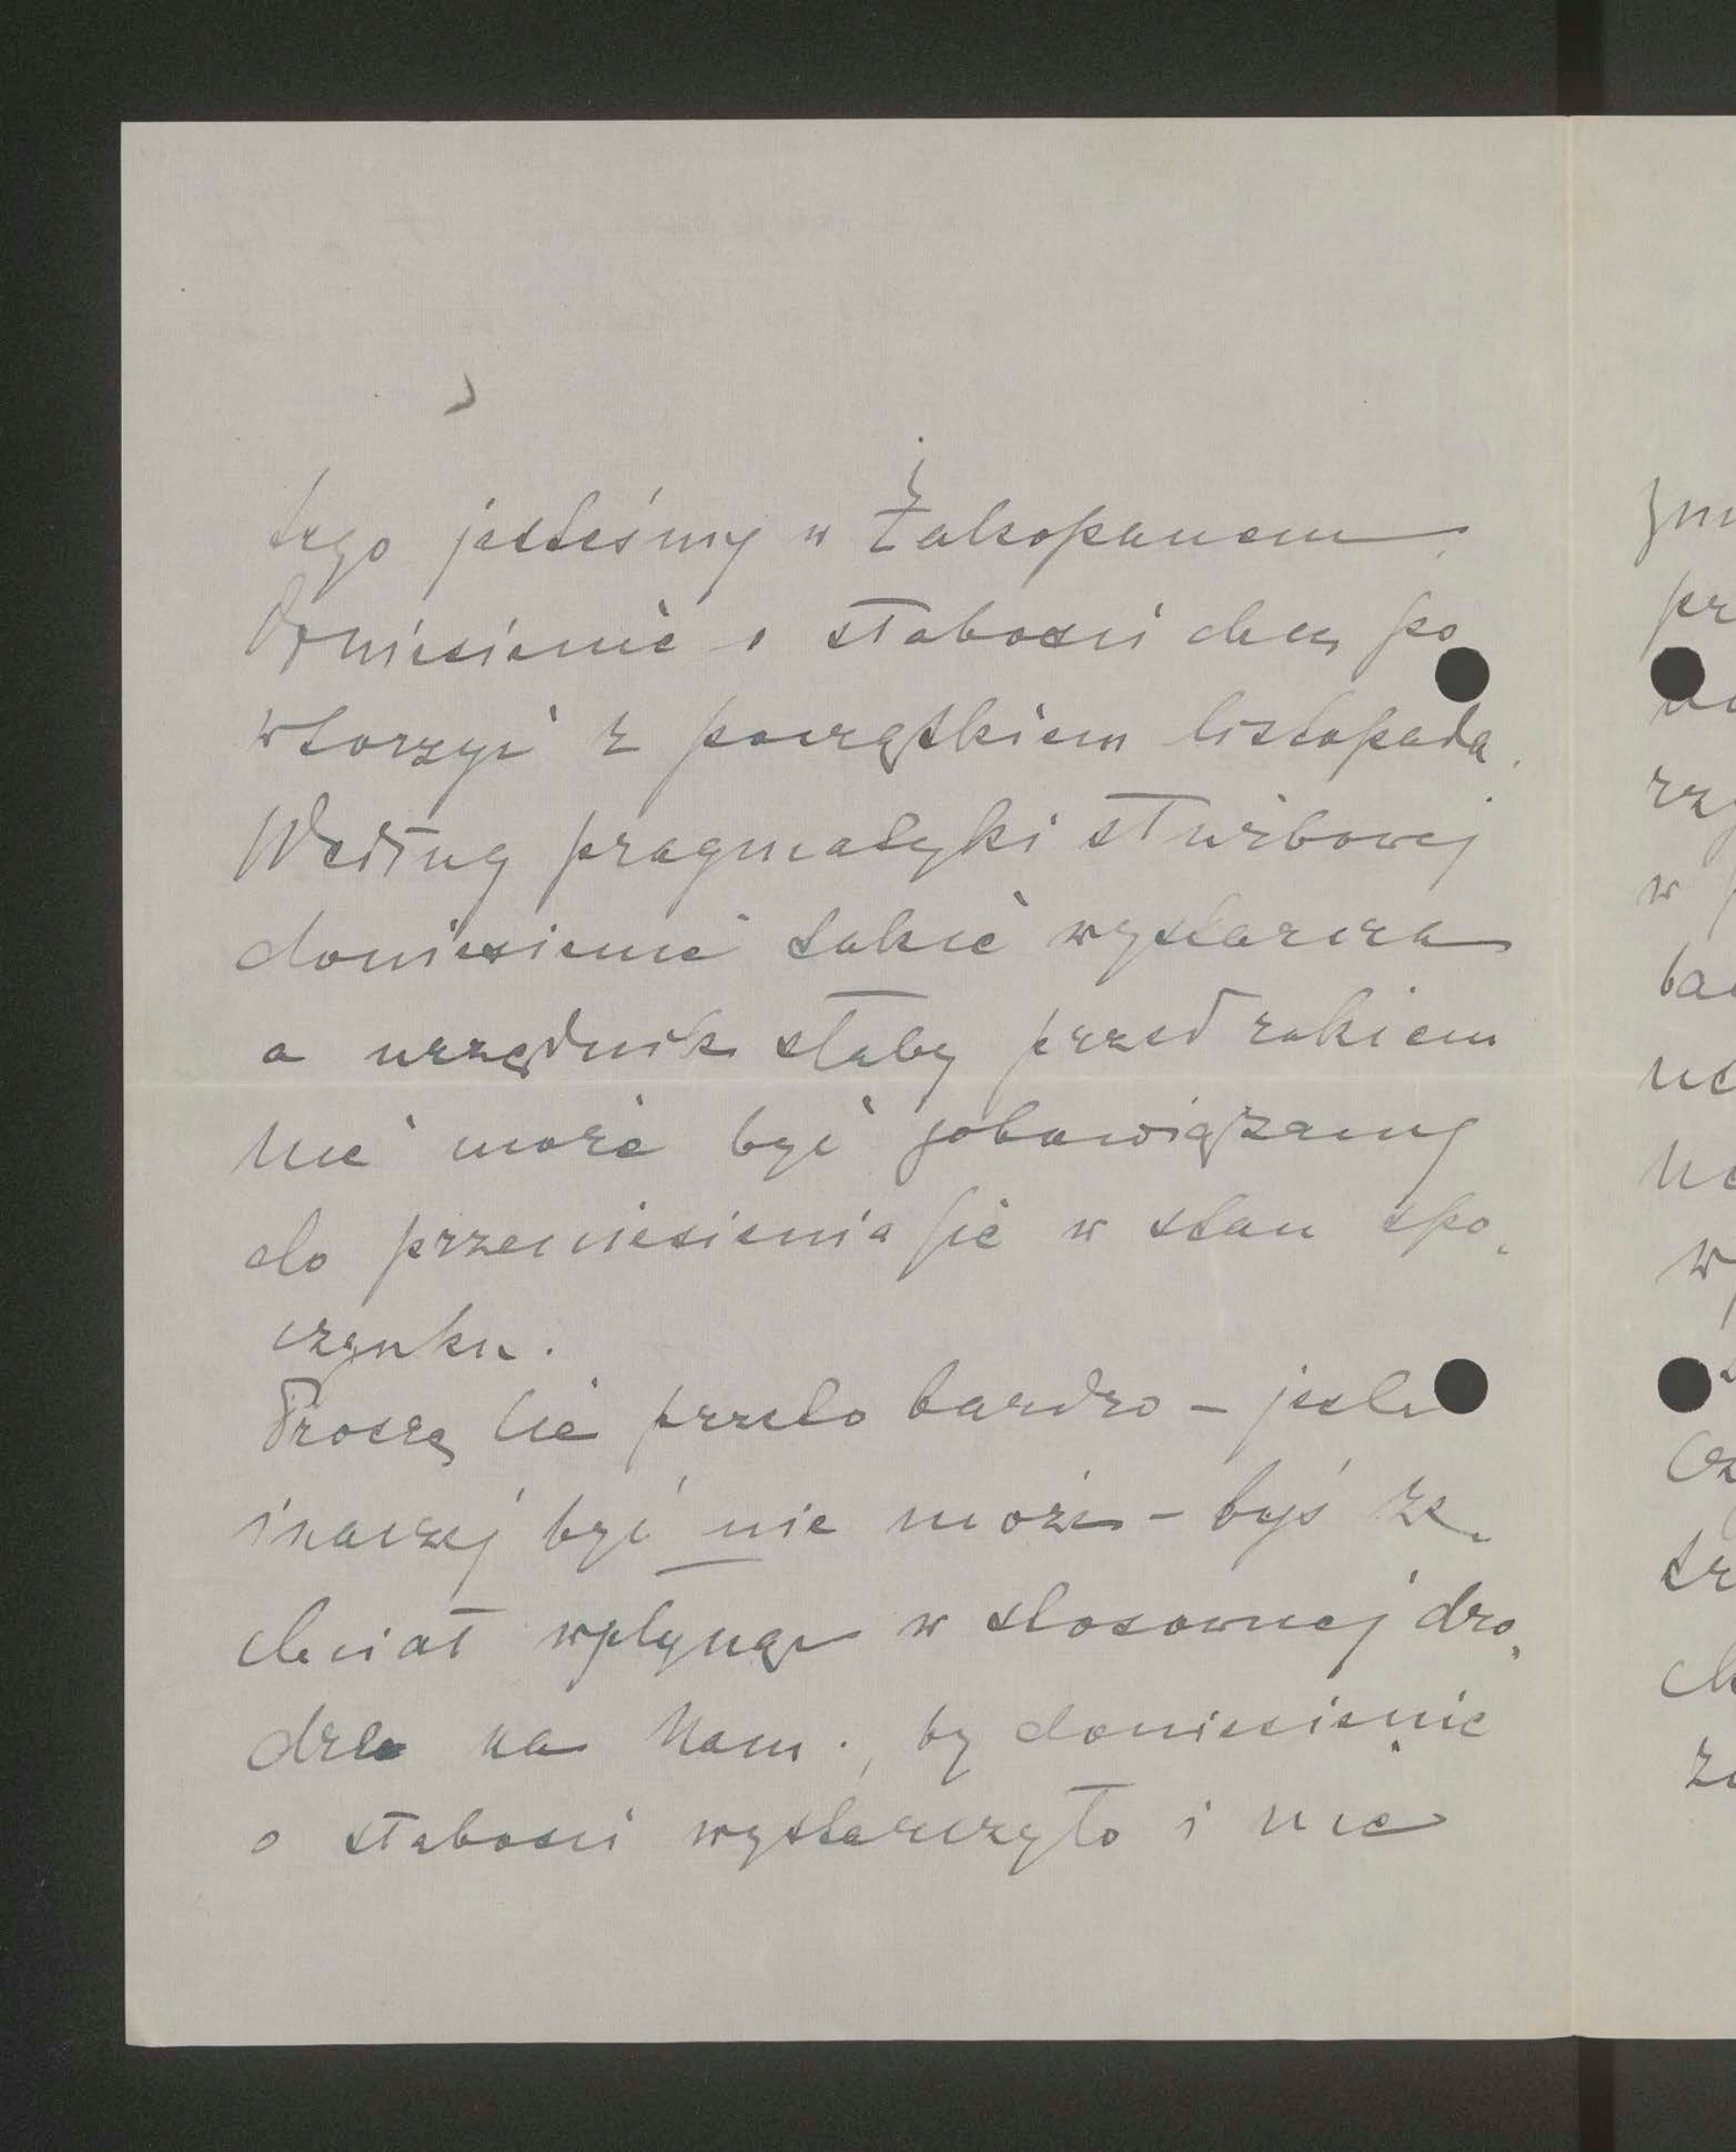 tego jesteśmy w Zakopanem.
Doniesienie o słabości chcę po
wtórzyć z początkiem listopada.
Według pragmatyki służbowej
doniesienie takie wystarcza
a urzędnik słaby przed rokiem
nie może być zobowiązany
do przeniesienia się w stan spo„
czynku.
Proszę Cię przeto bardzo – jeśli
inaczej być nie może – byś ze„
chciał wpłynąć w stosownej dro„
dze na Nam., by doniesienie
o słabości wystarczyło i nie